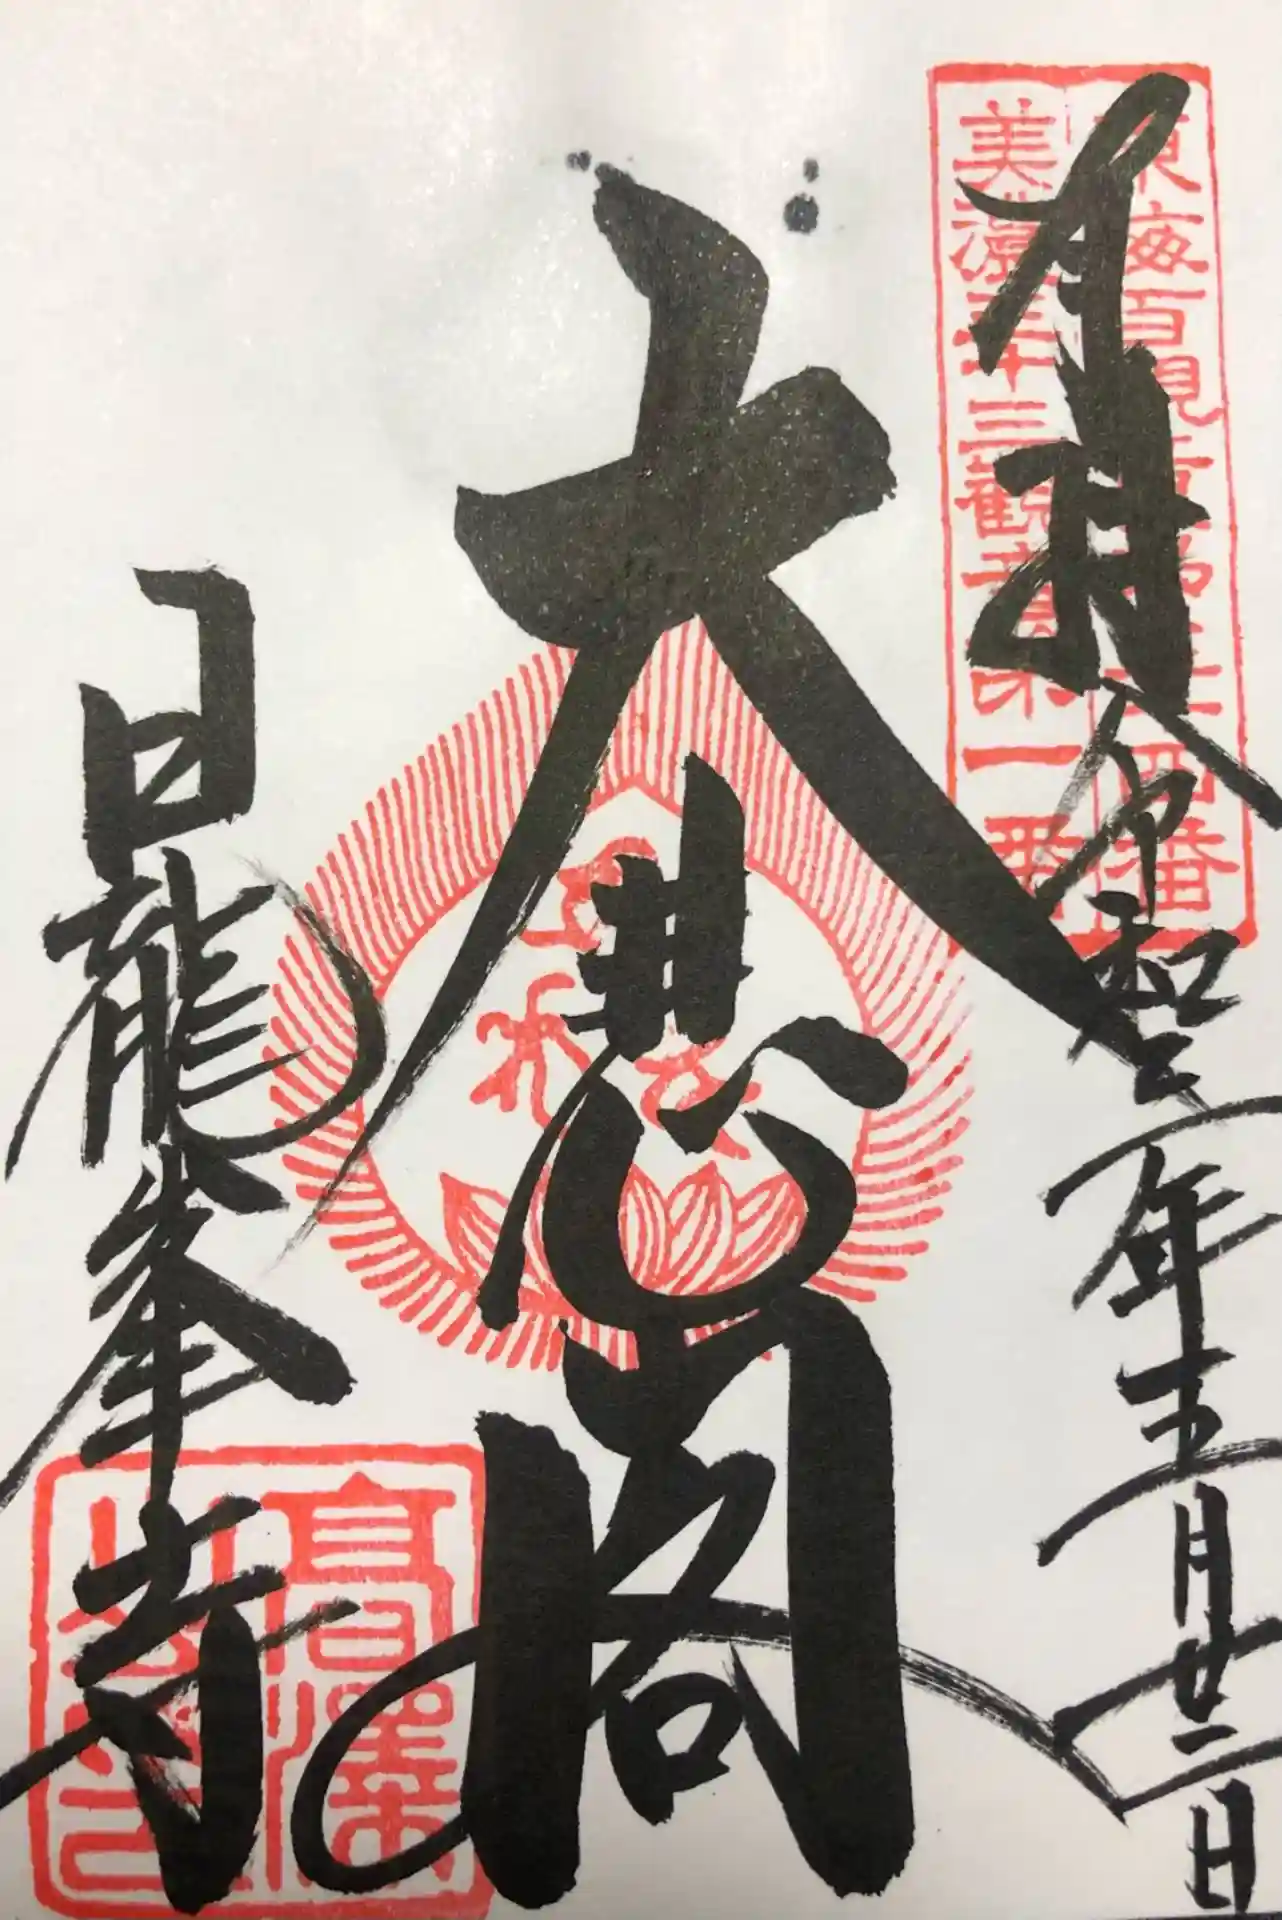 東海百観音第三十四番
美濃三十三観音第一番
奉拝
令和二年五月廿二日
大悲閣
日龍峯寺
高澤